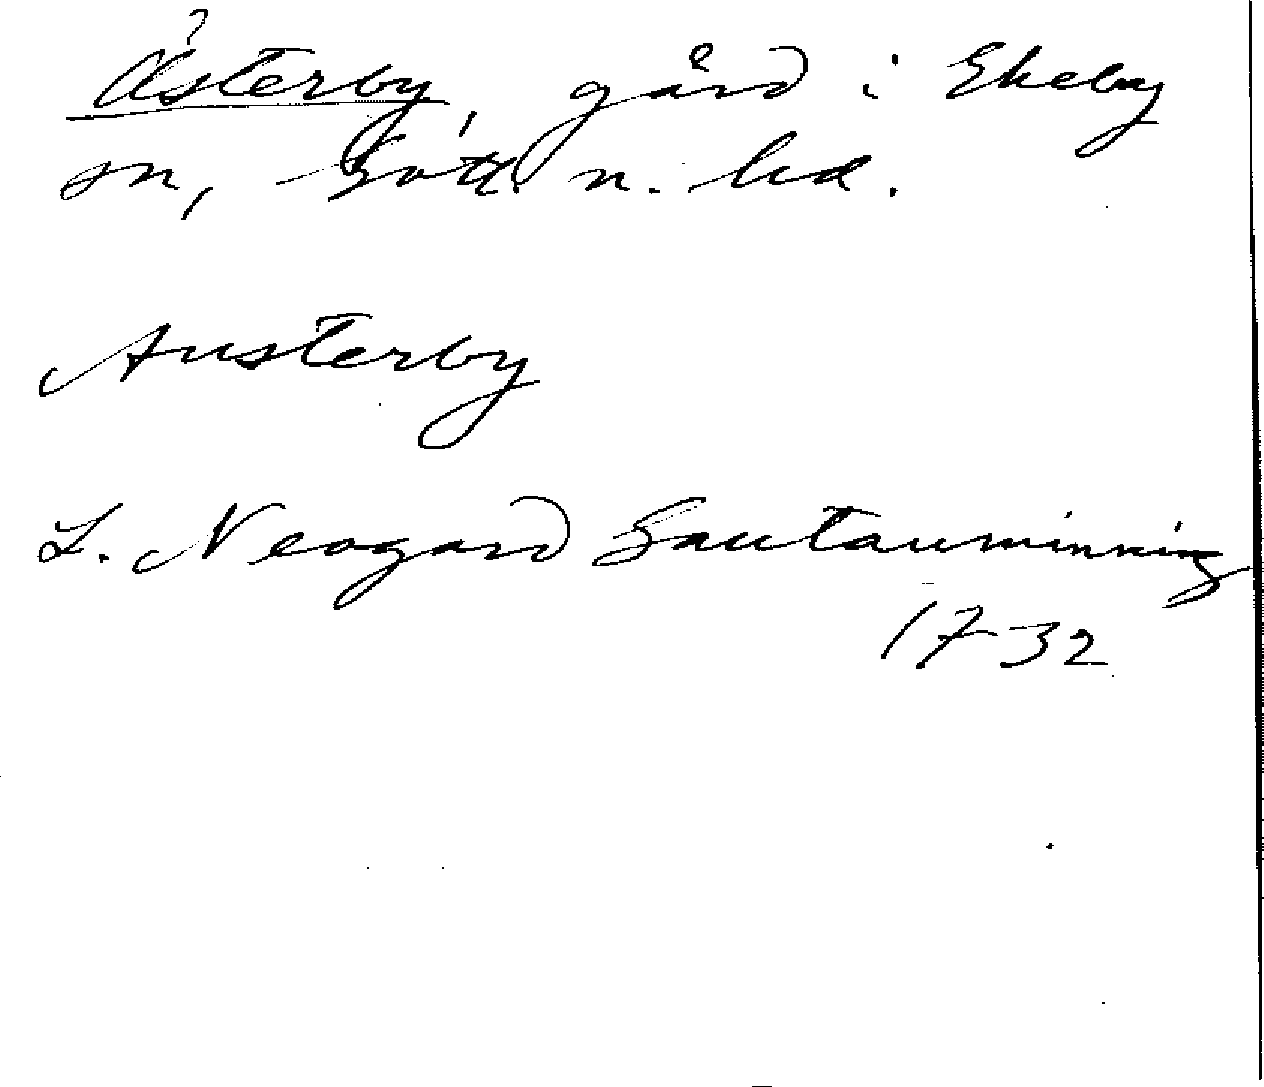 Österby, gård i Ekeby
sn, Gotl. n. hd.
Austerby
L. Neogard Gautauminning
1732